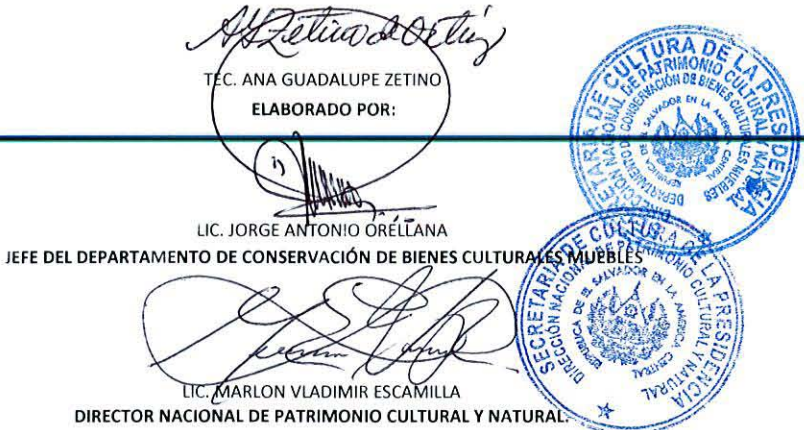 TEC. ANA GUADALUPE ZETINO
ELABORADO POR:
LIC. JORGE ANTONIO ORELLANA
JEFE DEL DEPARTAMENTO DE CONSERVACIÓN DE BIENES CULTURALES MUEBLES
LIC. MARLON VLADIMIR ESCAMILLA
DIRECTOR NACIONAL DE PATRIMONIO CULTURAL Y NATURAL.
SECRETARIA DE CULTURA DE LA PRESIDENCIA
DIRECCIÓN NACIONAL DE PATRIMONIO CULTURAL Y NATURAL
DEPARTAMENTO DE CONSERVACIÓN DE BIENES CULTURALES MUEBLES
REPUBLICA DE EL SALVADOR EN LA AMERICA CENTRAL
SECRETARIA DE CULTURA DE LA PRESIDENCIA
DIRECCIÓN NACIONAL DE PATRIMONIO CULTURAL Y NATURAL
REPUBLICA DE EL SALVADOR EN LA AMERICA CENTRAL